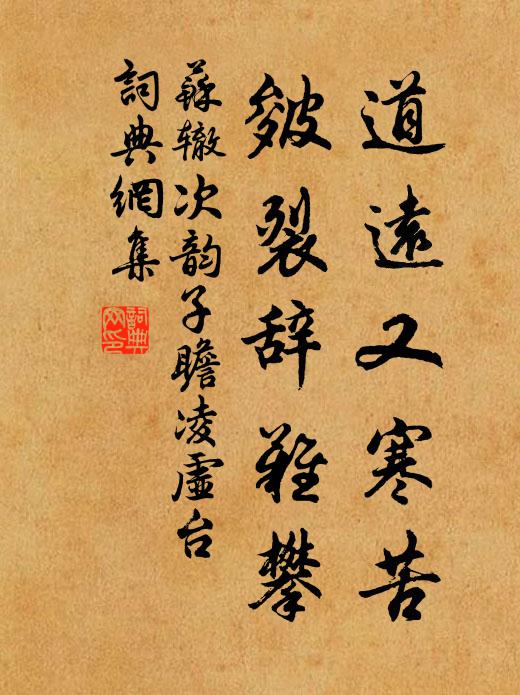 道遠又寒苦
皴裂辞難攀
蘇辙次韵子瞻凌虚台
詞典網集
詞典網印